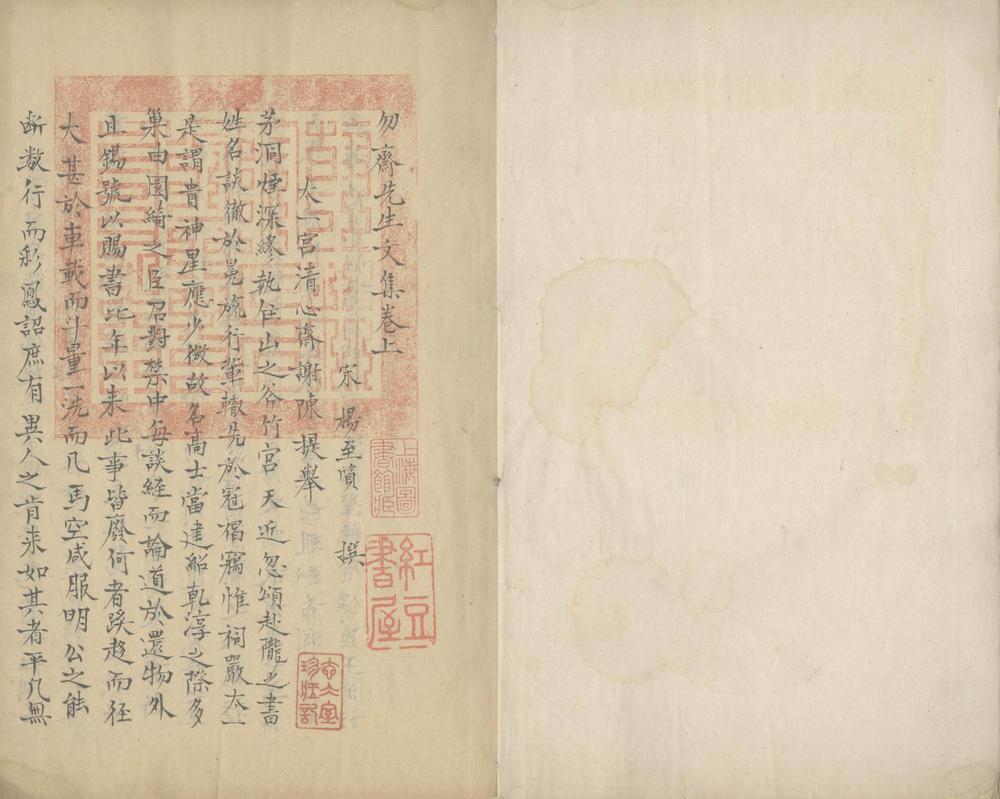 勿齋先生文集卷上
宋 楊至質 撰
太一宮清心齋謝陳提舉
茅洞煙深繆執住山之谷竹宮天近忽頌赴隴之書
姓名談徹於晃旒行輩轍先於冠褐竊惟祠嚴太一
是謂貴神星應少微故名高士當建紹乹淳之際多
巢由園綺之臣召對禁中每談經而論道於還物外
且錫號以賜書比年以来此事皆廢何者蹊趍而徑
大甚於車載而斗量一洗而凡馬空咸服明公之能
断数行而彩鳳詔庶有異人之肯来如其者平凡無
上海圖書館藏
紅豆書屋